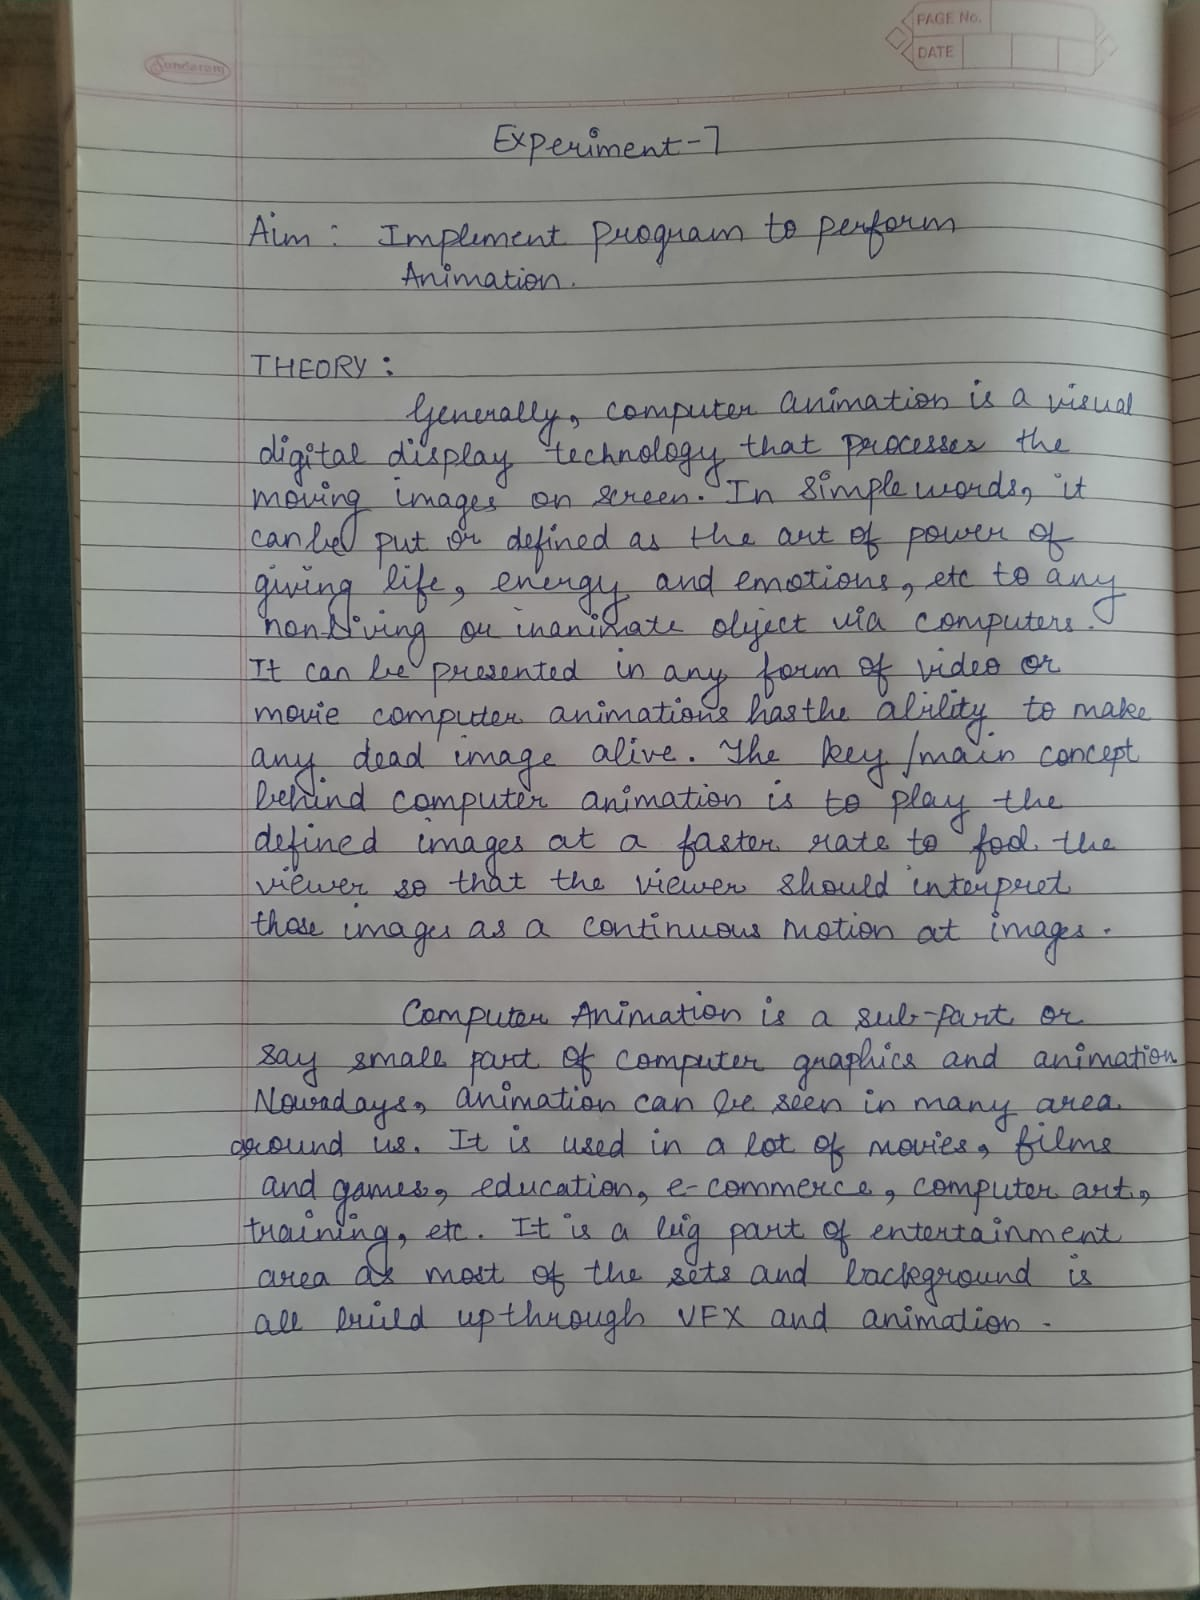 Sundaram
PAGE No.
DATE
Experiment-7
Aim : Implement program to perform
Animation.
THEORY :
Generally, computer animation is a visual
digital display technology that processes the
moving images on screen. In simple words, it
can be put or defined as the art of power of
giving life, energy and emotions, etc to any
non-living or inanimate object via computers.
It can be presented in any form of video or
movie computer animations has the ability to make
any dead image alive. The key/main concept
behind computer animation is to play the
defined images at a faster rate to fool the
viewer so that the viewer should interpret
those images as a continuous motion at images.
Computer Animation is a sub-part or
say small part of computer graphics and animation
Nowadays, animation can be seen in many area
around us. It is used in a lot of movies, films
and games, education, e-commerce, computer art,
training, etc. It is a big part of entertainment
area as most of the sets and background is
all build up through VFX and animation.